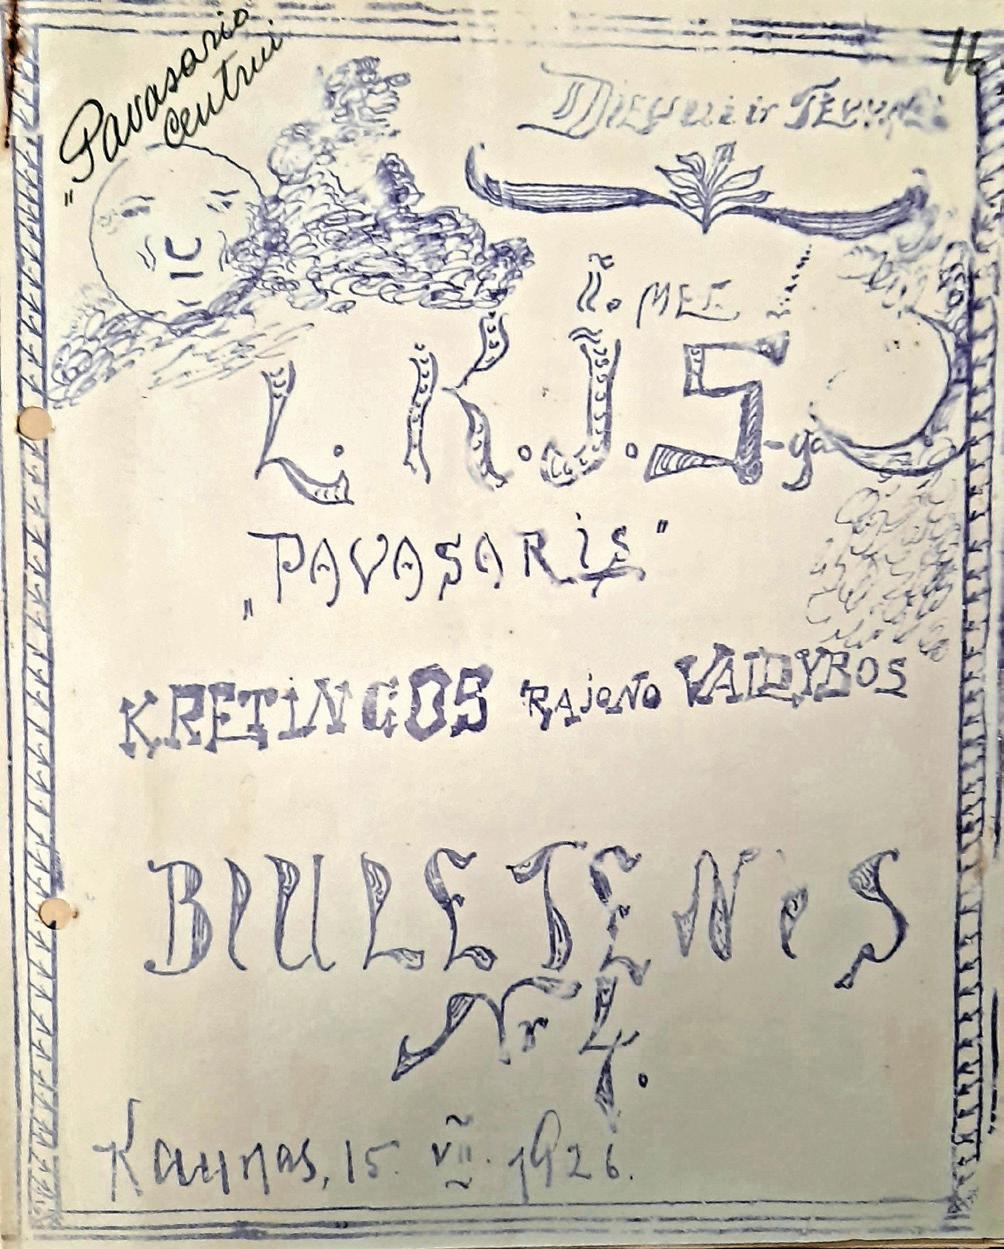 "Pavasario
Centrui
16
Dievui ir Tėvynei
II. MET.
L.K.J.S-ga
„PAVASARIS"
KRETINGOS RAJONO VALDYBOS
BIULETENIS
Nr 4.
Kaunas, 15. VII. 1926.